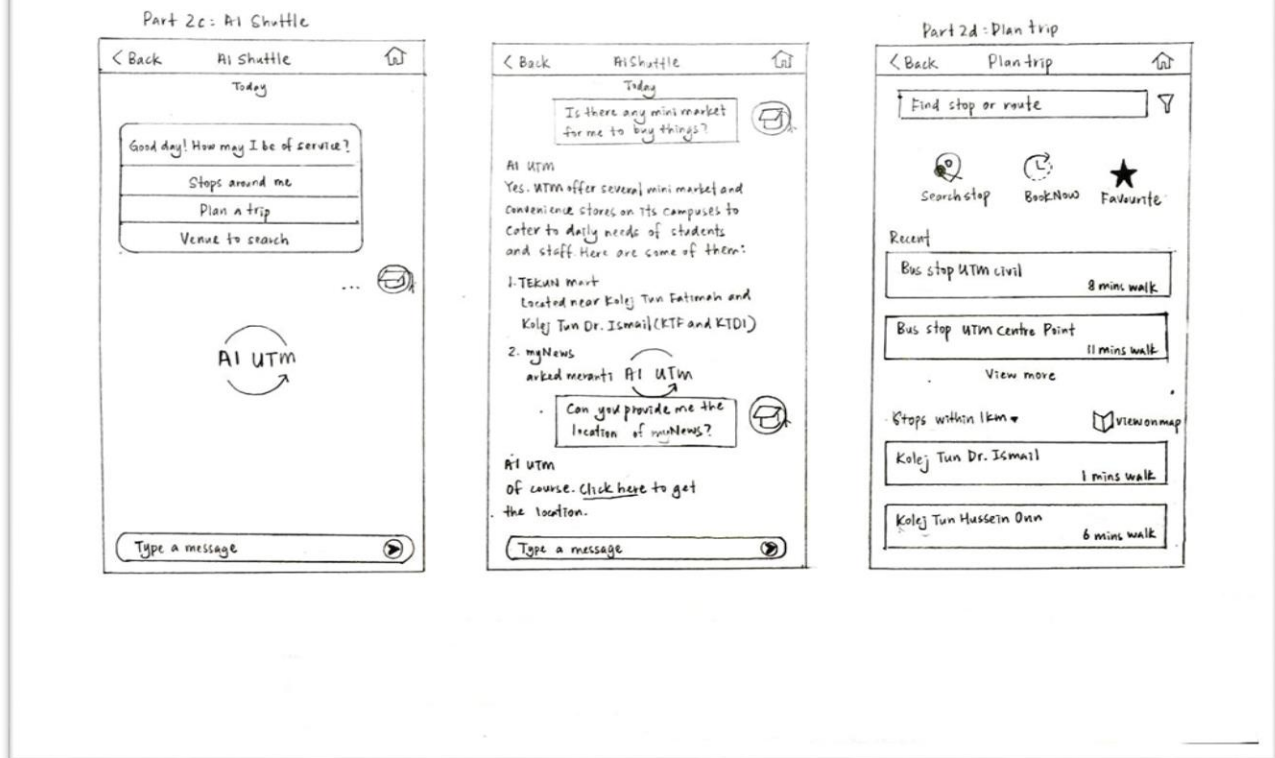 Part 2c: AI Shuttle
< Back AI Shuttle
Today
Good day! How may I be of service?
Stops around me
Plan a trip
Venue to search
...
AI UTM
Type a message
< Back AI Shuttle
Today
Is there any mini market
for me to buy things?
AI UTM
Yes. UTM offer several mini market and
convenience stores on its campuses to
cater to daily needs of students
and staff. Here are some of them:
1. TEKUN mart
Located near Kolej Tun Fatimah and
Kolej Tun Dr. Ismail (KTF and KTDI)
2. myNews
arked meranti
AI UTM
Can you provide me the
location of myNews?
AI UTM
Of course. Click here to get
the location.
Type a message
Part 2d: Plan trip
< Back Plan trip
Find stop or route
Search stop Book Now Favourite
Recent
Bus stop UTM civil
8 mins walk
Bus stop UTM Centre Point
11 mins walk
View more
Stops within 1km View on map
Kolej Tun Dr. Ismail
1 mins walk
Kolej Tun Hussein Onn
6 mins walk